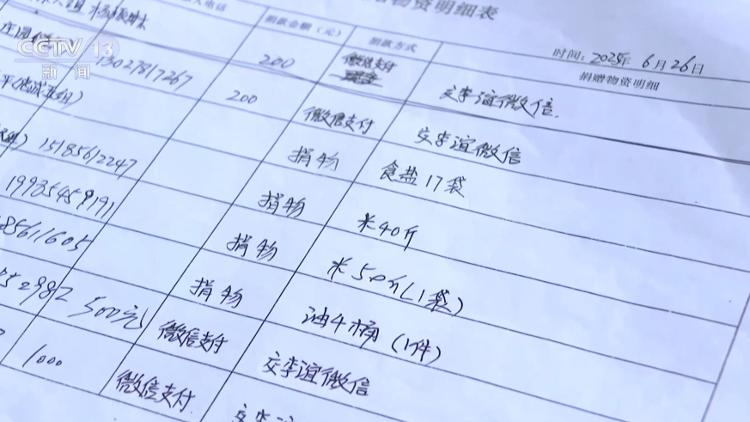 物资明细表
CCTV 13
新闻
时间：2025年6月26日
电话
捐款金额（元）
捐款方式
捐赠物资明细
13027817267
200
微信支付
交李谊微信.
200
微信支付
交李谊微信
15185612247
捐物
食盐17袋
19985459191
捐物
米40斤
85611605
捐物
米50斤(1袋)
捐物
油4桶(1件)
52982
500元
微信支付
交李谊微信
1000
微信支付
交李谊微信